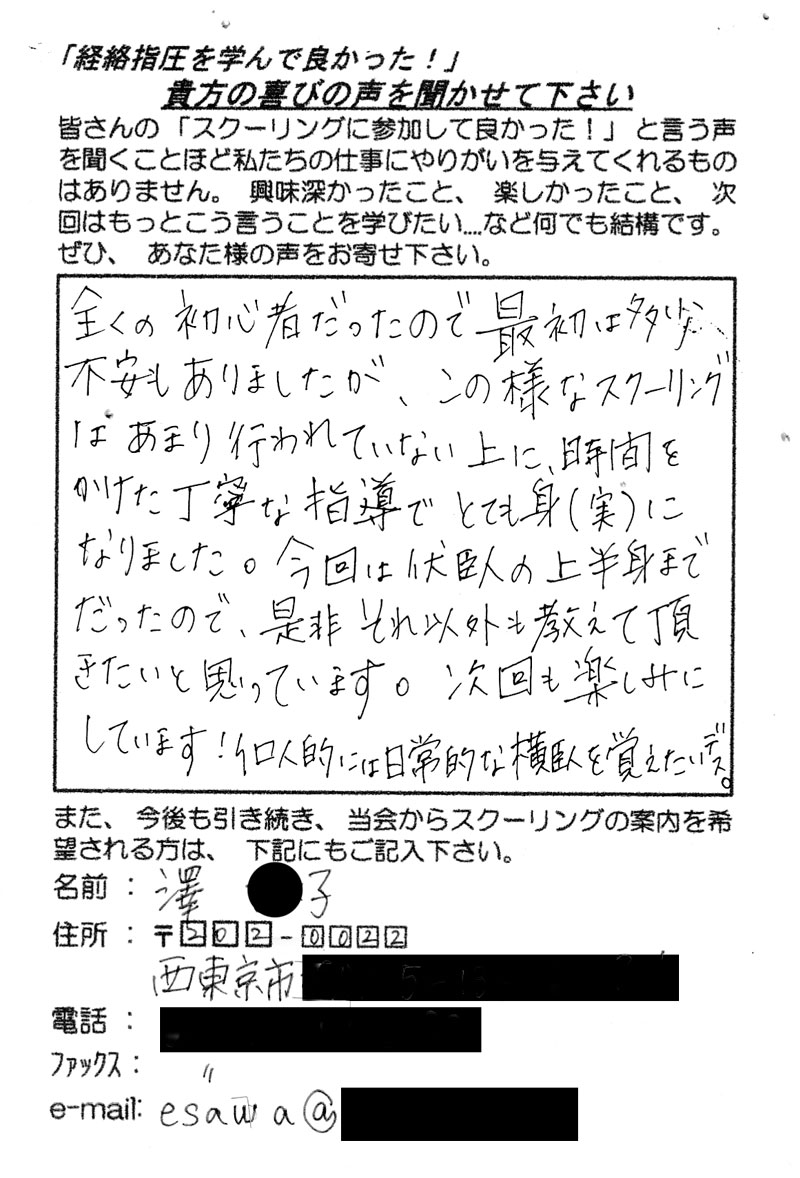 「経絡指圧を学んで良かった！」
貴方の喜びの声を聞かせて下さい
皆さんの「スクーリングに参加して良かった！」と言う声
を聞くことほど私たちの仕事にやりがいを与えてくれるもの
はありません。興味深かったこと、楽しかったこと、次
回はもっとこう言うことを学びたい....など何でも結構です。
ぜひ、あなた様の声をお寄せ下さい。
全くの初心者だったので最初は多少
不安もありましたが、この様なスクーリング
はあまり行われていない上に、時間を
かけた丁寧な指導でとても身(実)に
なりました。今回は伏臥の上半身まで
だったので、是非それ以外も教えて頂
きたいと思っています。次回も楽しみに
しています！個人的には日常的な横臥を覚えたいデス。
また、今後も引き続き、当会からスクーリングの案内を希
望される方は、下記にもご記入下さい。
名前：澤 子
住所：〒202-0022
西東京市
電話：
ファックス：〃
e-mail: esawa@